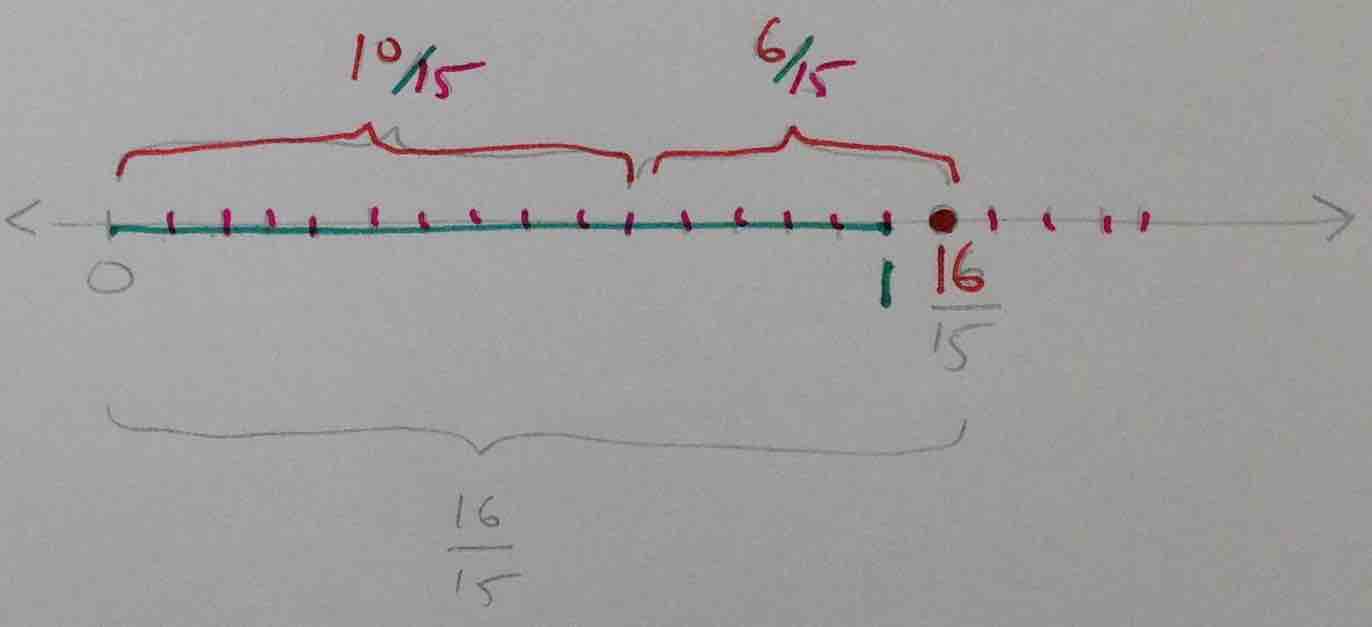 10/15 6/15
0 1 16/15
16/15